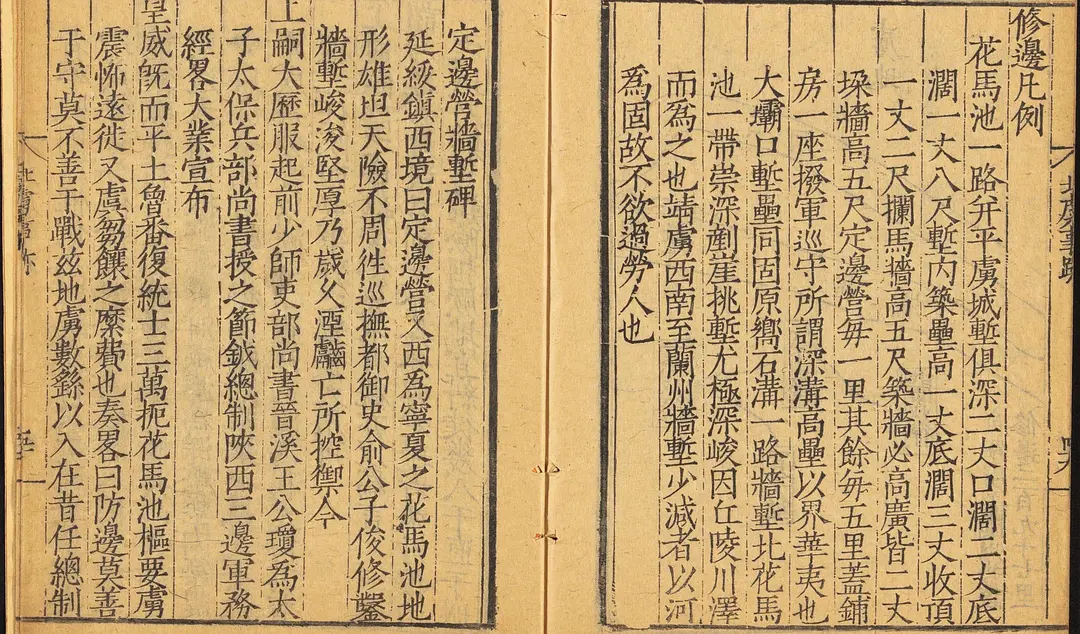 修邊凡例
花馬池一路并平虜城塹俱深二丈口濶二丈底
濶一丈八尺塹内築壘高一丈底濶三丈收頂
一丈二尺攔馬牆高五尺築牆必高廣皆二丈
垛牆高五尺定邊營每一里其餘每五里蓋鋪
房一座撥軍巡守所謂深溝高壘以界華夷也
大壩口塹壘同固原嚮石溝一路牆塹北花馬
池一帶崇深剷崖挑塹尤極深峻因丘陵川澤
而為之也靖虜西南至蘭州牆塹少減者以河
為固故不欲過勞人也
定邊營牆塹碑
延綏鎮西境曰定邊營又西為寧夏之花馬池地
形雄坦天險不周徃巡撫都御史俞公子俊修鑿
牆塹峻浚堅厚乃歲久湮齾亡所控禦今
上嗣大歷服起前少師吏部尚書晉溪王公瓊為太
子太保兵部尚書授之節鉞總制陝西三邊軍務
經畧大業宣布
皇威旣而平土魯番復統士三萬扼花馬池樞要虜
震怖遠徙又虞芻饟之縻費也奏畧曰防邊莫善
于守莫不善于戰玆地虜數繇以入在昔任總制